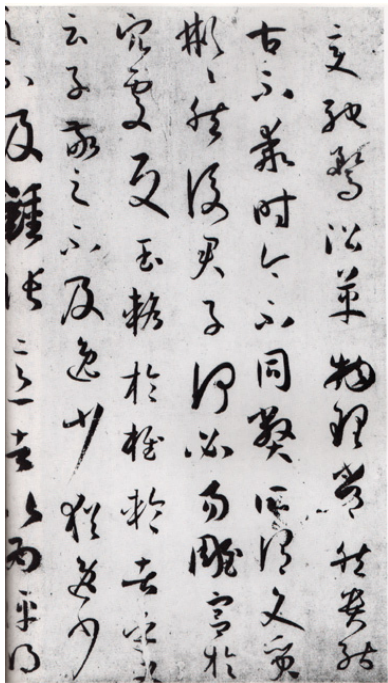 變馳騖沿革物理常然貴能
古不乖時今不同弊所謂文質
彬彬然後君子何必易雕宮於
穴處反玉輅於椎輪者乎又
云子敬之不及逸少猶逸少
之不及鍾張意者以為評得